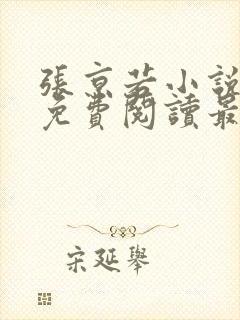 張京若小說
免費閱讀最
宋延舉